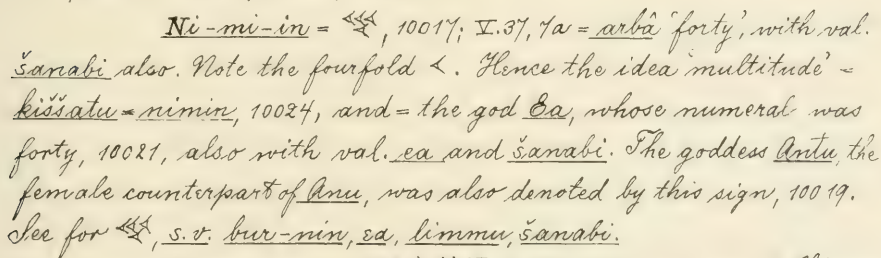 Ni-mi-in = 𒐏, 10017; V.37, 7a = arbâ 'forty', with val.
šanabi also. Note the fourfold 𒌋. Hence the idea 'multitude' =
kiššatu = nimin, 10024, and = the god Ea, whose numeral was
forty, 10021, also with val. ea and šanabi. The goddess Antu, the
female counterpart of Anu, was also denoted by this sign, 10019.
See for 𒐏, s.v. bur-nin, ea, limmu, šanabi.